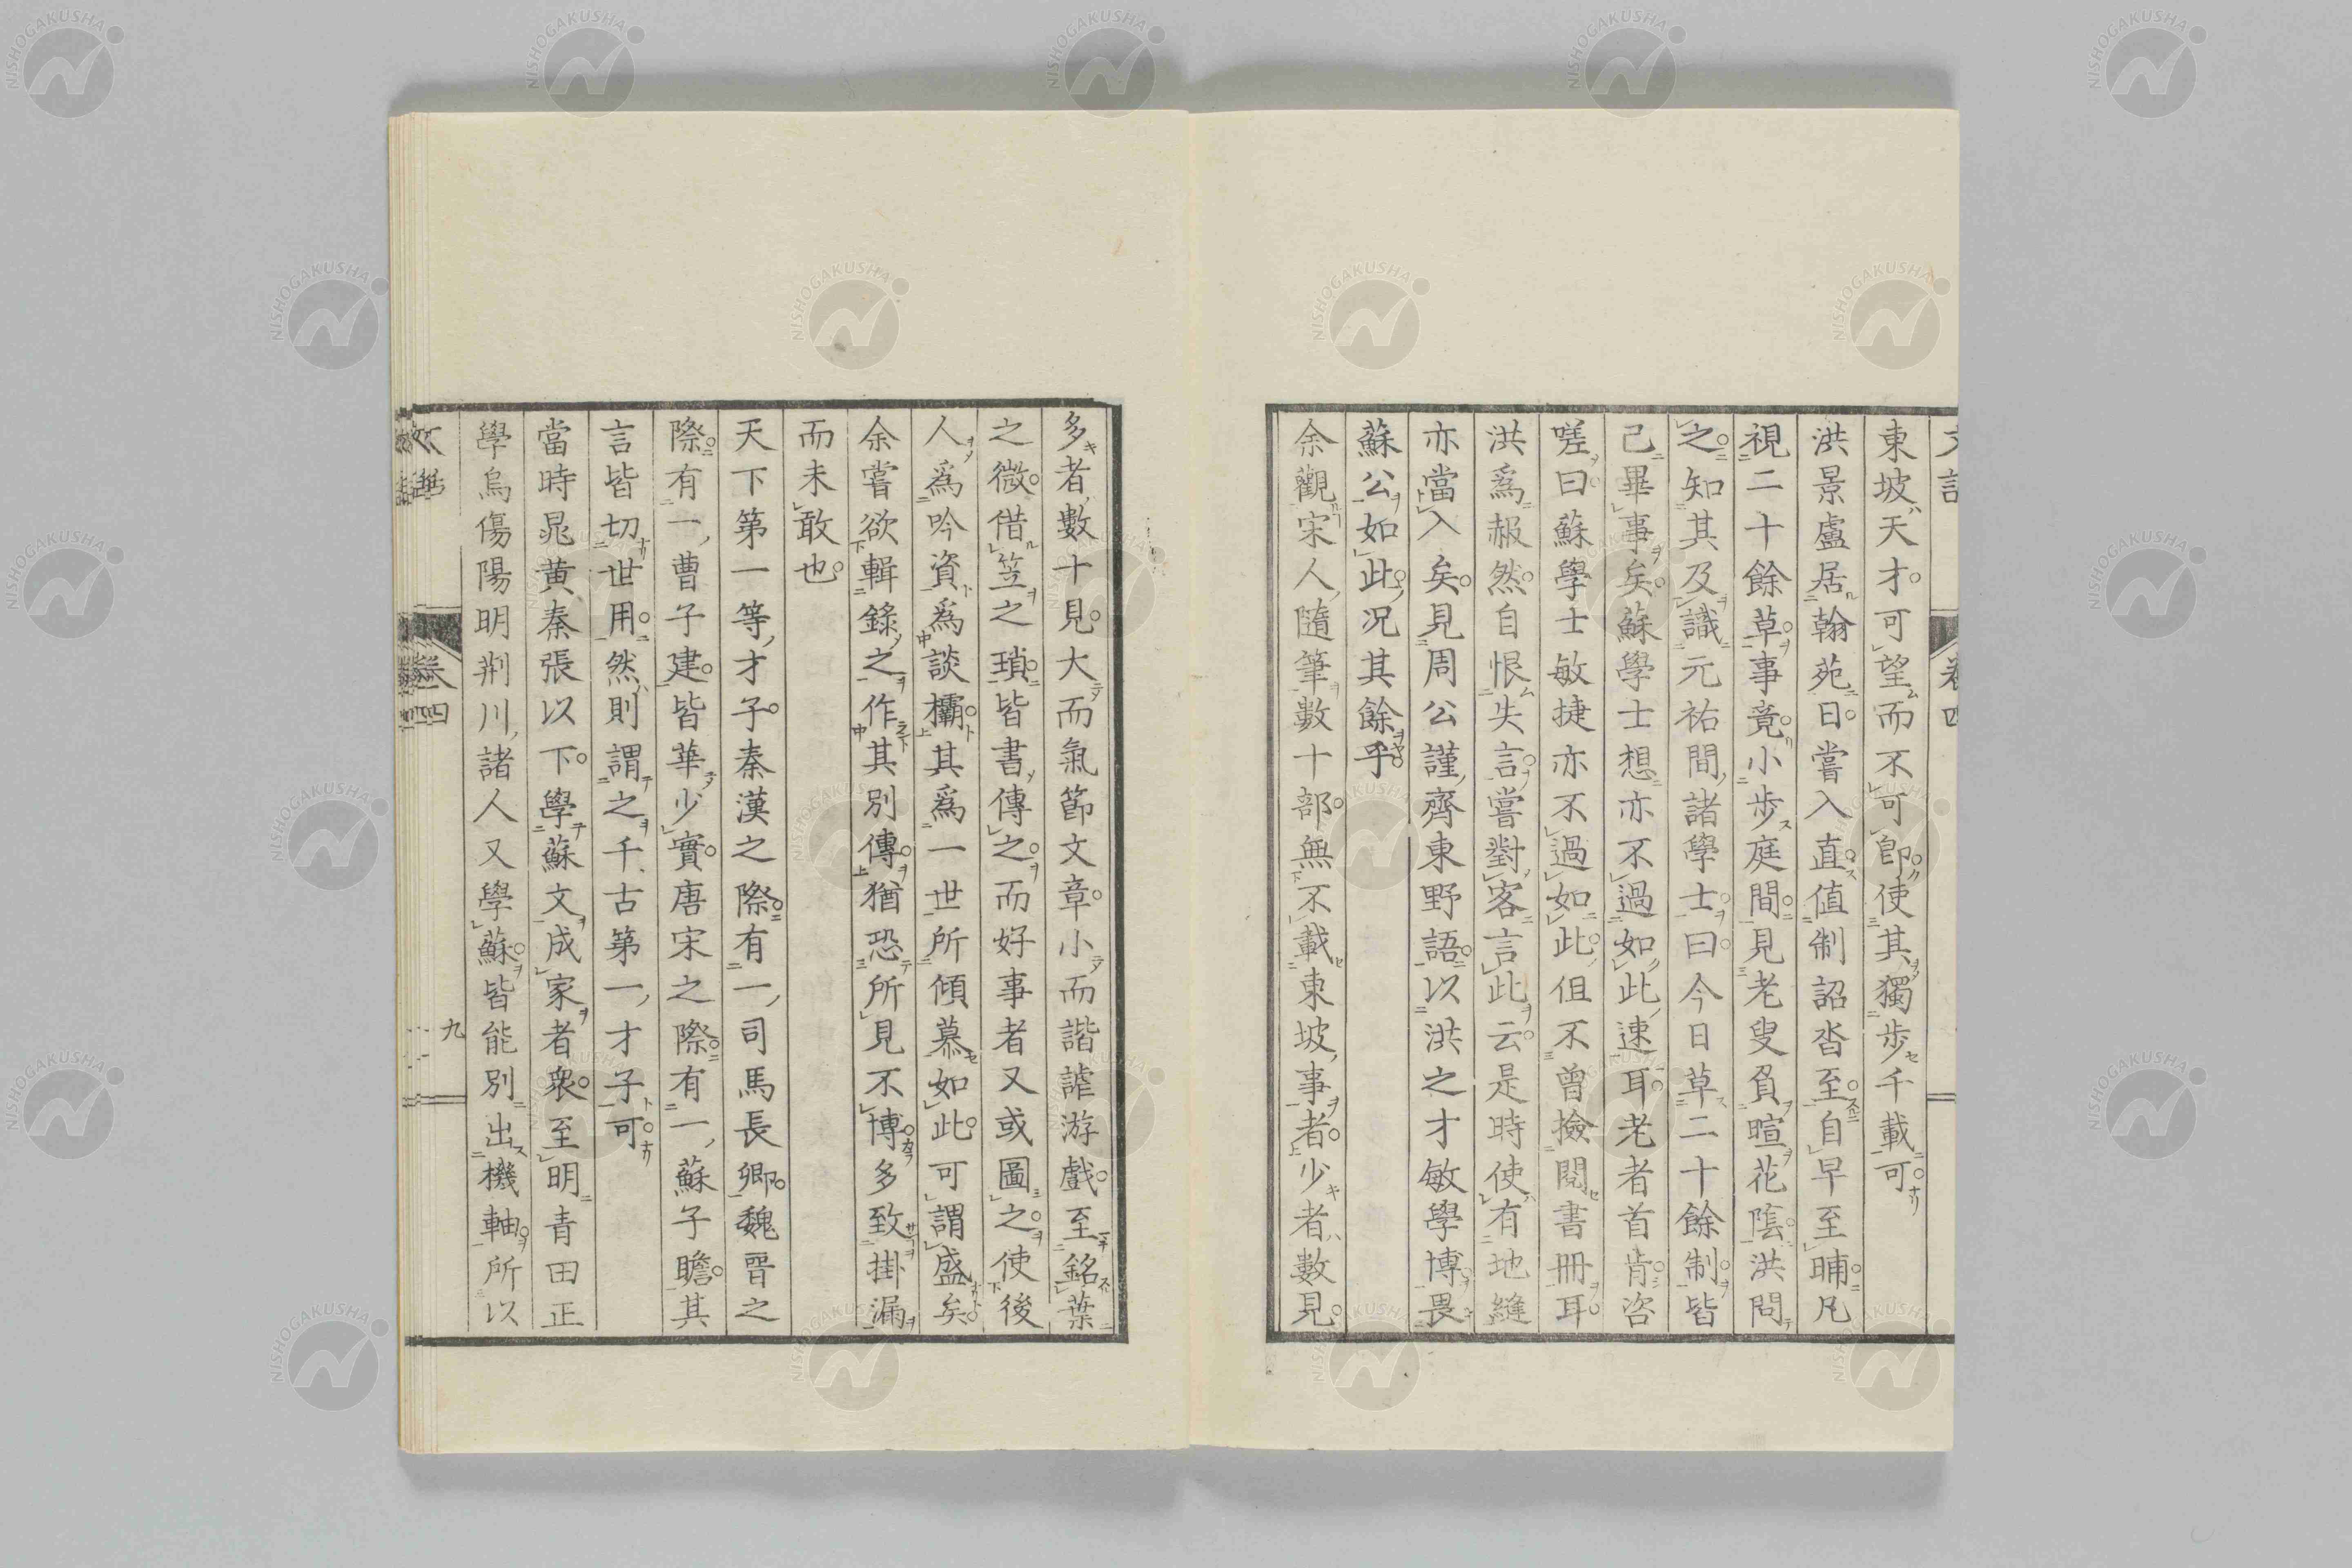 文話 卷四
東坡天才可望而不可卽使其獨步千載可
洪景盧居翰苑日嘗入直值制詔沓至自早至晡凡
視二十餘草事竟小步庭間見老叟負暄花陰洪問
之知其及識元祐間諸學士曰今日草二十餘制皆
已畢事矣蘇學士想亦不過如此速耳老者首肯咨
嗟曰蘇學士敏捷亦不過如此但不曾撿閱書冊耳
洪爲赧然自恨失言嘗對客言此云是時使有地縫
亦當入矣見周公謹齊東野語以洪之才敏學博畏
蘇公如此況其餘乎
余觀宋人隨筆數十部無不載東坡事者少者數見
多者數十見大而氣節文章小而諧謔游戲至銘葉
之微借笠之瑣皆書傳之而好事者又或圖之使後
人爲吟資爲談欛其爲一世所傾慕如此可謂盛矣
余嘗欲輯錄之作其別傳猶恐所見不博多致掛漏
而未敢也
天下第一等才子秦漢之際有一司馬長卿魏晉之
際有一曹子建皆華少實唐宋之際有一蘇子瞻其
言皆切世用然則謂之千古第一才子可
當時晁黄秦張以下學蘇文成家者衆至明青田正
學烏傷陽明荆川諸人又學蘇皆能別出機軸所以
文話 卷四 九
NISHOGAKUSHA